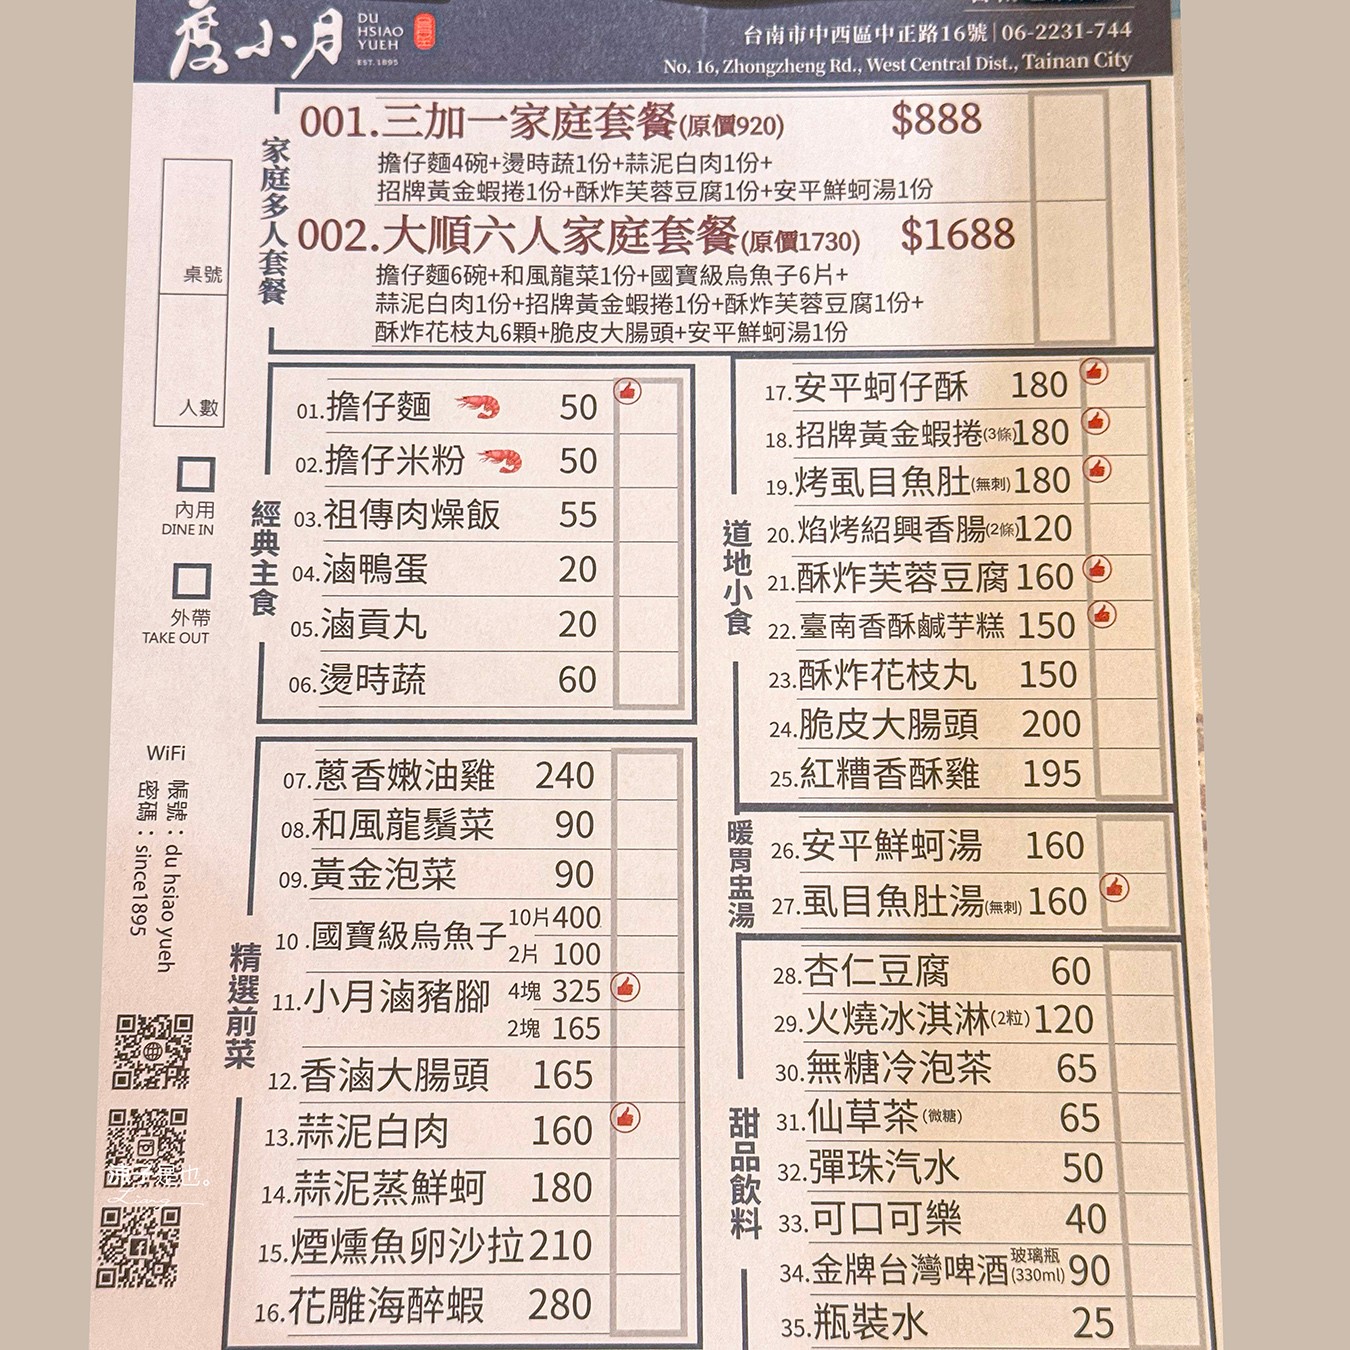 度小月
DU
HSIAO
YUEH
EST.1895
台南市中西區中正路16號 | 06-2231-744
No. 16, Zhongzheng Rd., West Central Dist., Tainan City
桌號
人數
內用
DINE IN
外帶
TAKE OUT
WiFi
帳號：du hsiao yueh
密碼：since1895
家庭多人套餐
001.三加一家庭套餐(原價920) $888
擔仔麵4碗+燙時蔬1份+蒜泥白肉1份+
招牌黃金蝦捲1份+酥炸芙蓉豆腐1份+安平鮮蚵湯1份
002.大順六人家庭套餐(原價1730) $1688
擔仔麵6碗+和風龍菜1份+國寶級烏魚子6片+
蒜泥白肉1份+招牌黃金蝦捲1份+酥炸芙蓉豆腐1份+
酥炸花枝丸6顆+脆皮大腸頭+安平鮮蚵湯1份
經典主食
01.擔仔麵 50
02.擔仔米粉 50
03.祖傳肉燥飯 55
04.滷鴨蛋 20
05.滷貢丸 20
06.燙時蔬 60
精選前菜
07.蔥香嫩油雞 240
08.和風龍鬚菜 90
09.黃金泡菜 90
10.國寶級烏魚子 10片 400
2片 100
11.小月滷豬腳 4塊 325
2塊 165
12.香滷大腸頭 165
13.蒜泥白肉 160
14.蒜泥蒸鮮蚵 180
15.煙燻魚卵沙拉 210
16.花雕海醉蝦 280
道地小食
17.安平蚵仔酥 180
18.招牌黃金蝦捲(3條) 180
19.烤虱目魚肚(無刺) 180
20.焰烤紹興香腸(2條) 120
21.酥炸芙蓉豆腐 160
22.臺南香酥鹹芋糕 150
23.酥炸花枝丸 150
24.脆皮大腸頭 200
25.紅糟香酥雞 195
暖胃盅湯
26.安平鮮蚵湯 160
27.虱目魚肚湯(無刺) 160
甜品飲料
28.杏仁豆腐 60
29.火燒冰淇淋(2粒) 120
30.無糖冷泡茶 65
31.仙草茶(微糖) 65
32.彈珠汽水 50
33.可口可樂 40
34.金牌台灣啤酒 玻璃瓶(330ml) 90
35.瓶裝水 25